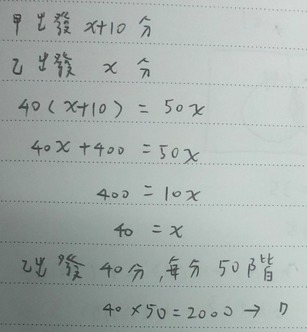 甲出發 x+10 分
乙出發 x 分
40(x+10) = 50x
40x+400 = 50x
400 = 10x
40 = x
乙出發 40分,每分 50階
40×50=2000→